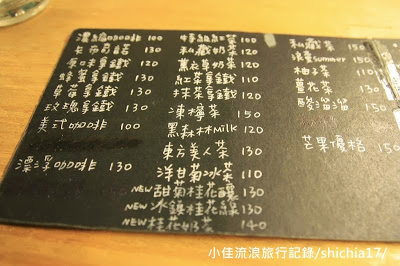 濃縮咖啡 100
卡布奇諾 130
原味拿鐵 120
蜂蜜拿鐵 130
拿鐵 130
玫瑰拿鐵 130
美式咖啡 100
漂浮咖啡 130
特級紅茶 100
私藏奶茶 120
薰衣草奶茶 130
紅茶拿鐵 110
抹茶拿鐵 120
凍檸茶 150
黑森林milk 120
東方美人茶 130
洋甘菊冰茶 110
NEW 甜菊桂花釀 130
NEW 冰鎮桂花綠 130
NEW 桂花奶茶 140
私藏茶 150
浪漫summer 150
柚子茶 110
薑花茶 130
酸溜溜 150
芒果優格 150
小佳流浪旅行記錄/shichia17/